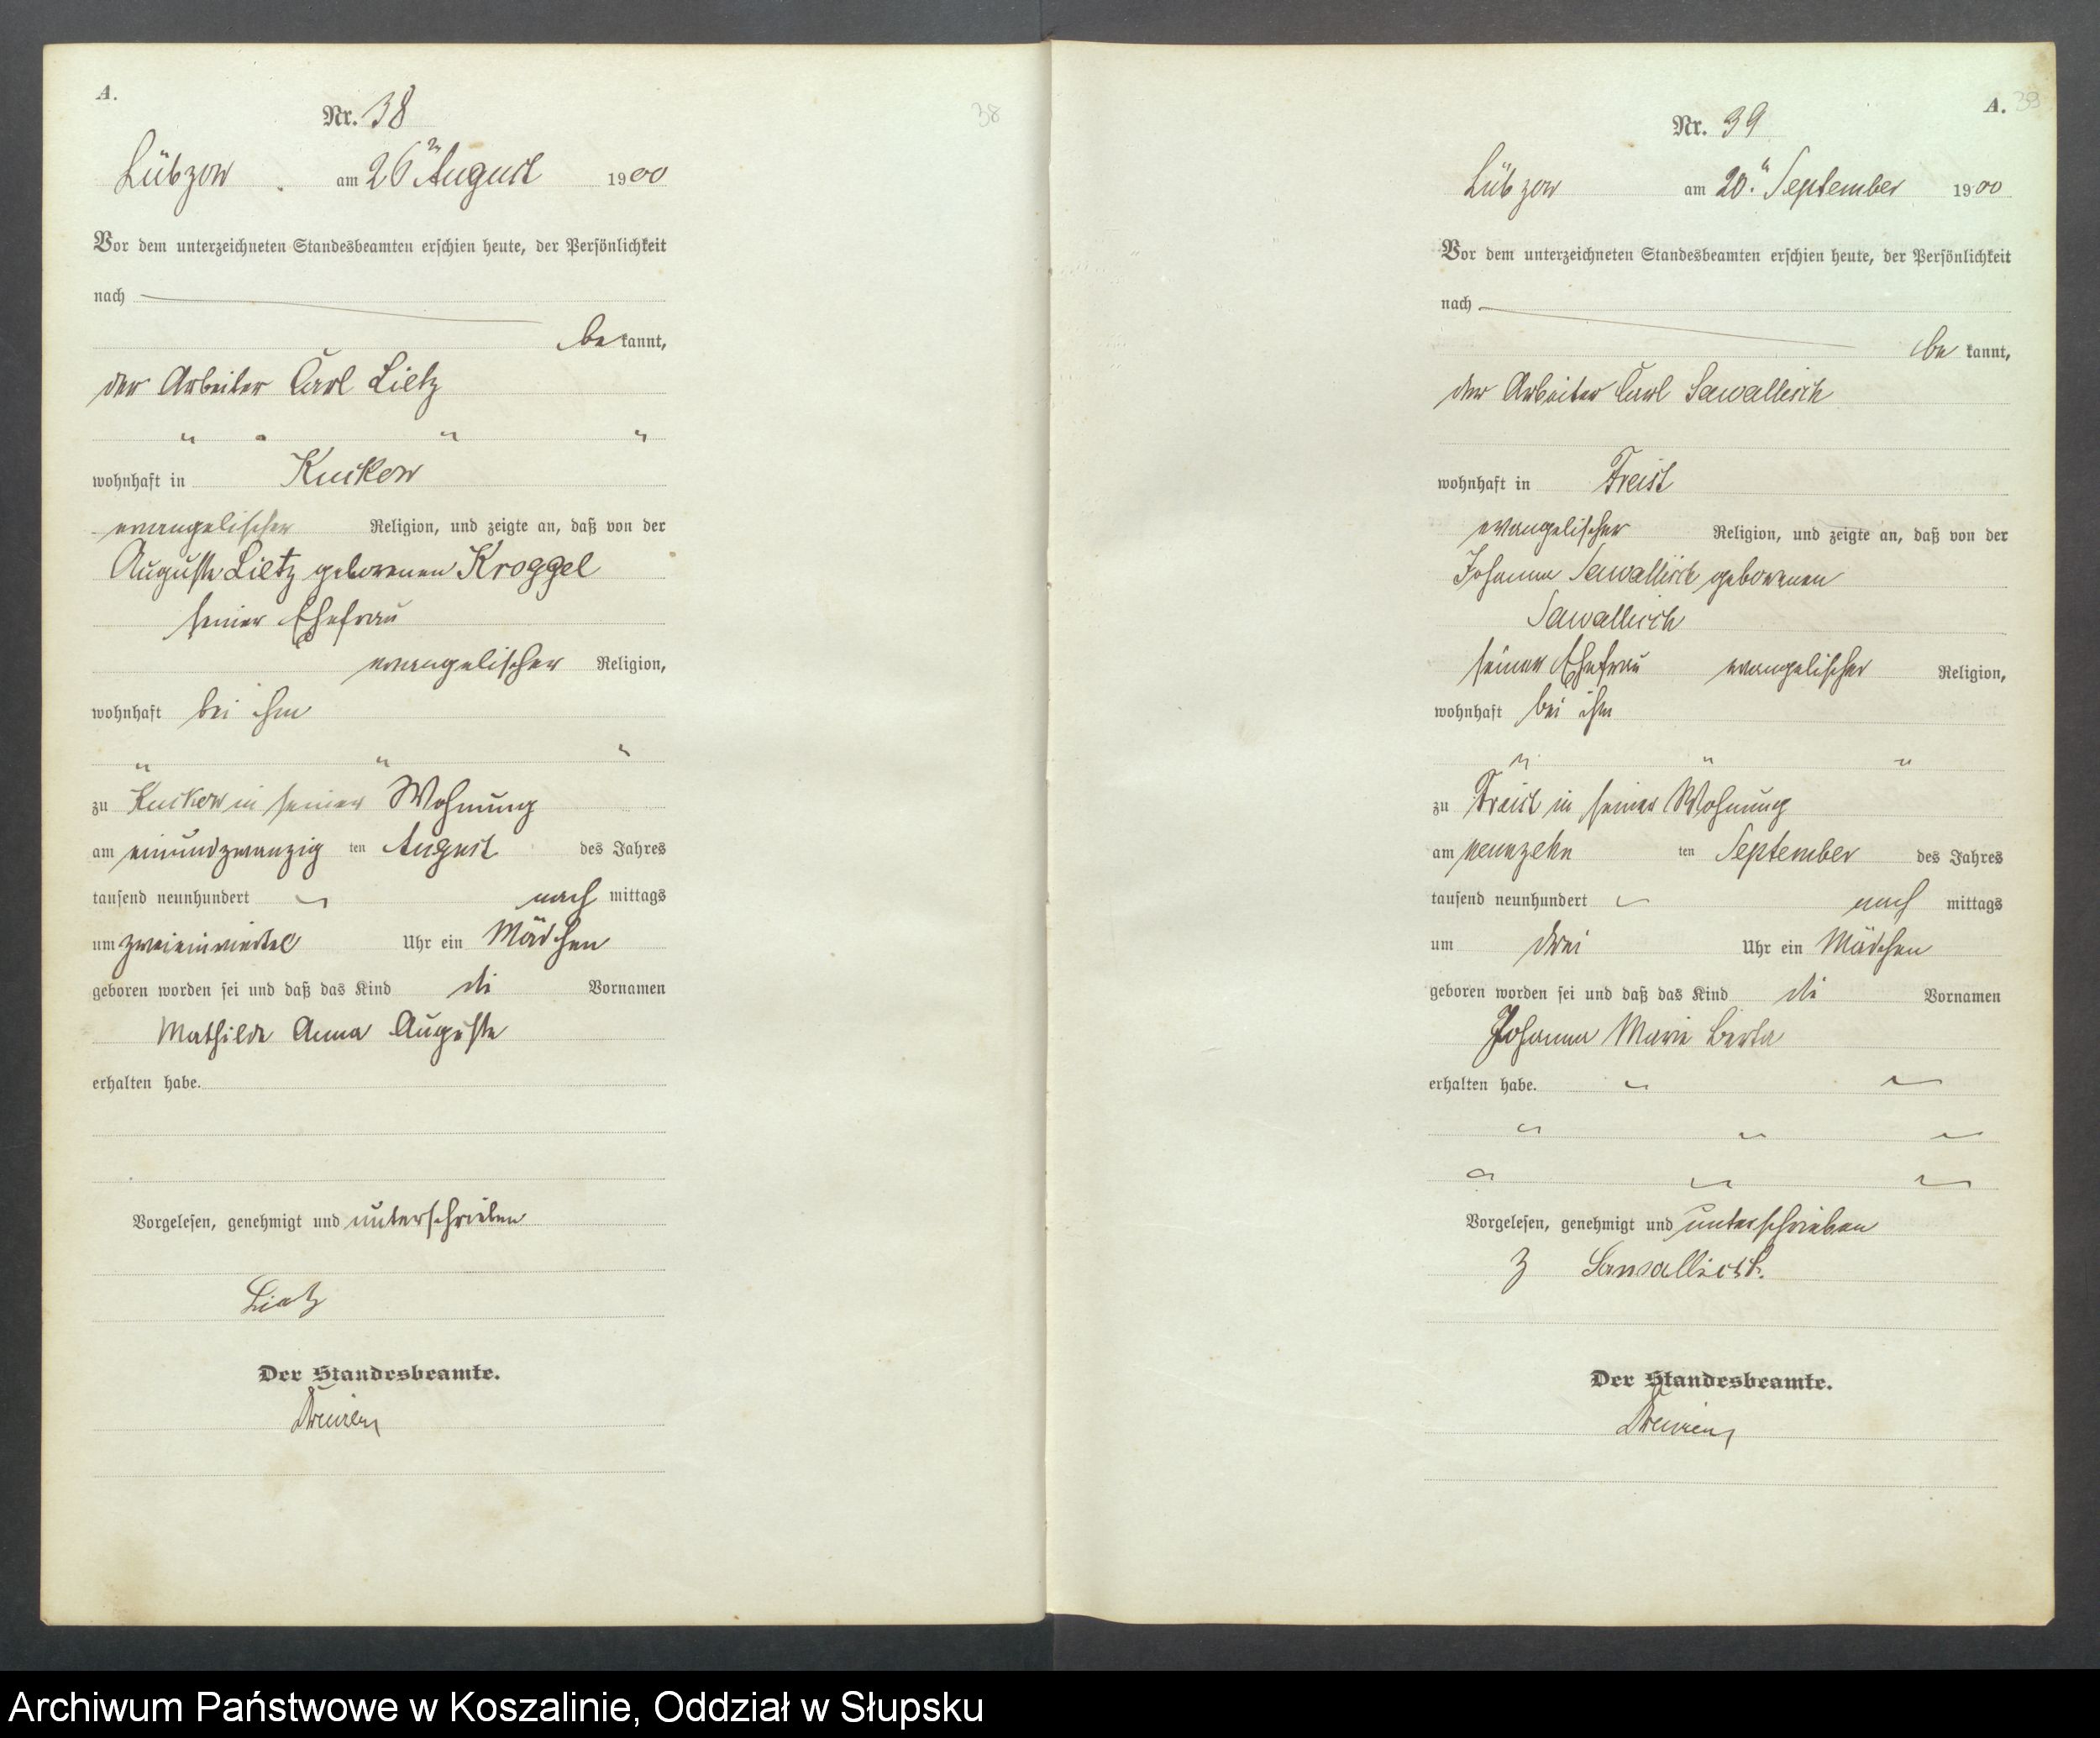 A.
Nr. 38
38
Lübzow am 26ten August 1900
Vor dem unterzeichneten Standesbeamten erschien heute, der Persönlichkeit
nach
be kannt,
der Arbeiter Carl Lietz
wohnhaft in Kuckow
evangelischer Religion, und zeigte an, daß von der
Auguste Lietz geborenen Kroggel
seiner Ehefrau
evangelischer Religion,
wohnhaft bei ihm
zu Kuckow in seiner Wohnung
am einundzwanzig ten August des Jahres
tausend neunhundert nach mittags
um zweieinviertel Uhr ein Mädchen
geboren worden sei und daß das Kind die Vornamen
Mathilde Anna Auguste
erhalten habe.
Vorgelesen, genehmigt und unterschrieben
Lietz
Der Standesbeamte.
A. 39
Nr. 39
Lübzow am 20. September 1900
Vor dem unterzeichneten Standesbeamten erschien heute, der Persönlichkeit
nach
be kannt,
der Arbeiter Carl Sawallisch
wohnhaft in Freist
evangelischer Religion, und zeigte an, daß von der
Johanna Sawallisch geborenen
Sawallisch
seiner Ehefrau evangelischer Religion,
wohnhaft bei ihm
zu Freist in seiner Wohnung
am neunzehn ten September des Jahres
tausend neunhundert nach mittags
um drei Uhr ein Mädchen
geboren worden sei und daß das Kind die Vornamen
Johanna Marie Berta
erhalten habe.
Vorgelesen, genehmigt und unterschrieben
Sawallisch.
Der Standesbeamte.
Archiwum Państwowe w Koszalinie, Oddział w Słupsku